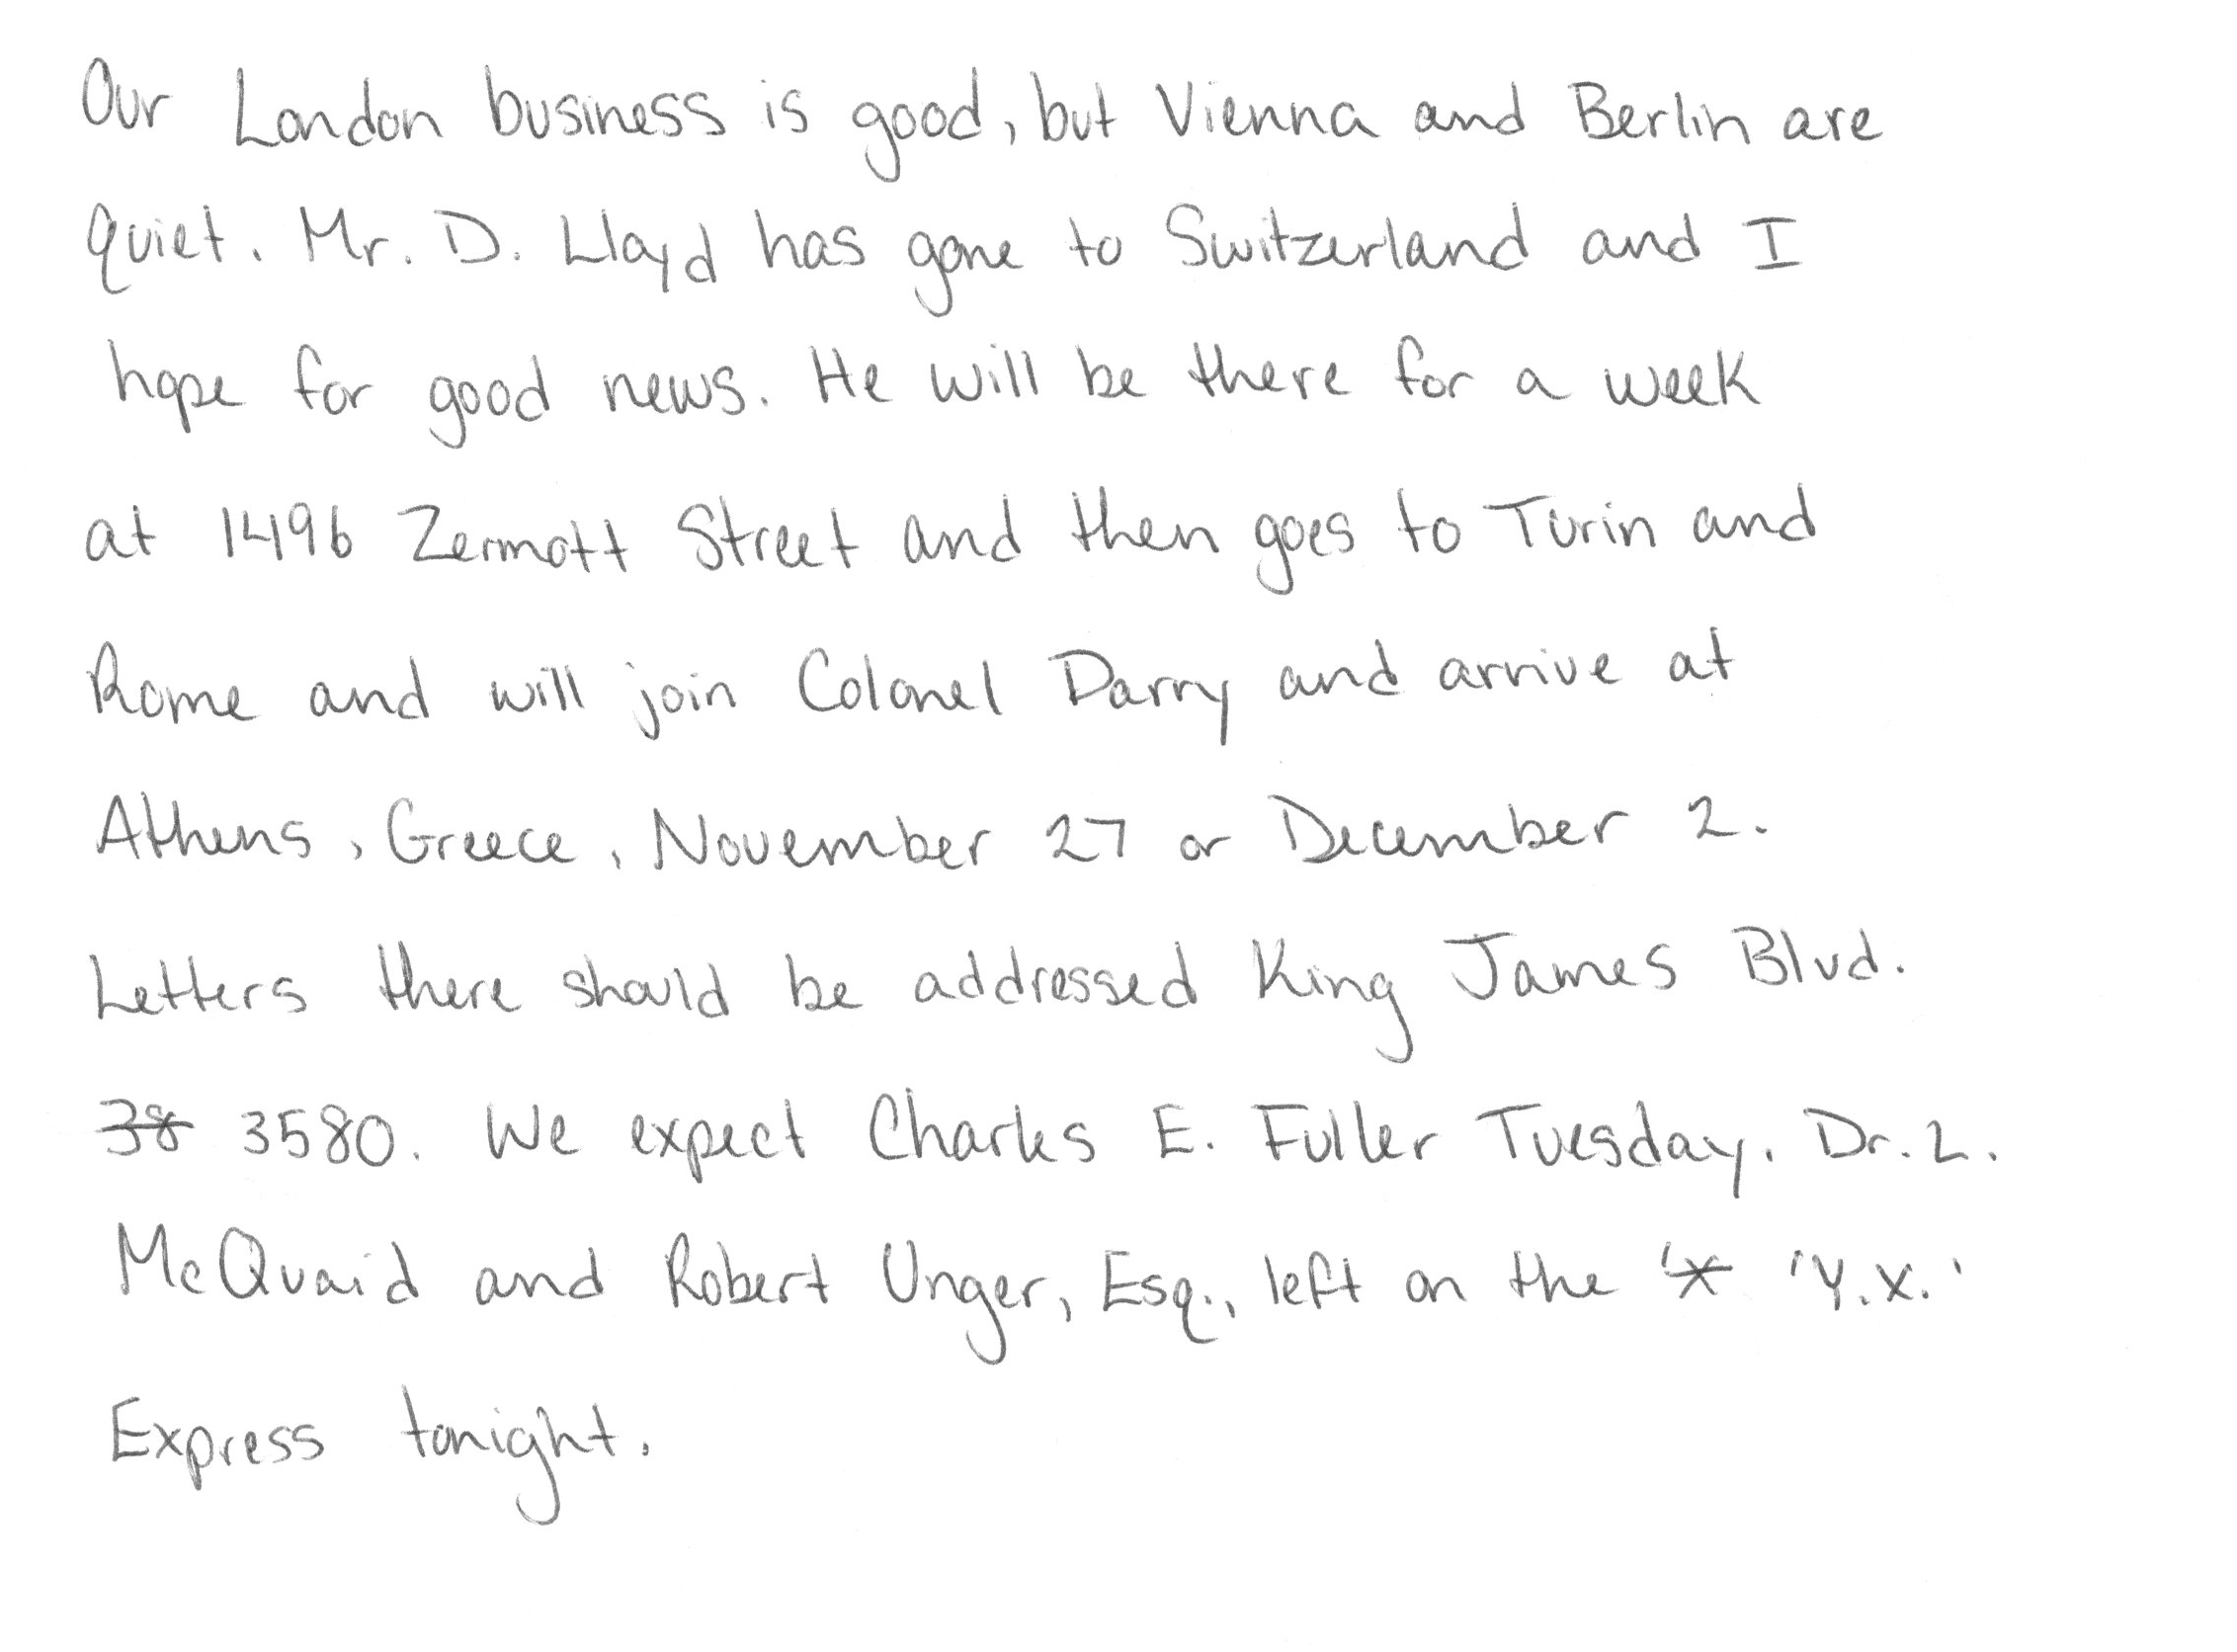 Our London business is good, but Vienna and Berlin are
quiet. Mr. D. Lloyd has gone to Switzerland and I
hope for good news. He will be there for a week
at 1496 Zermott Street and then goes to Turin and
Rome and will join Colonel Darry and arrive at
Athens, Greece, November 27 or December 2.
Letters there should be addressed King James Blvd.
38 3580. We expect Charles E. Fuller Tuesday. Dr. L.
McQuaid and Robert Unger, Esq., left on the 'X 'Y.X.'
Express tonight.